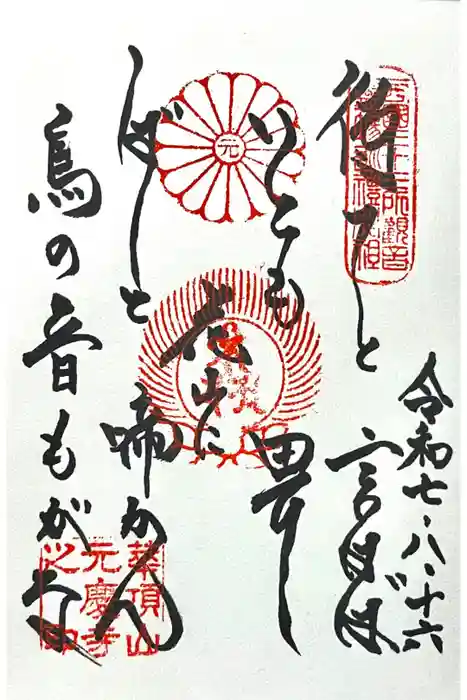 西國三十三所觀音
令和七・八・十六
待てと言はば
いとも畏し
元
花山に
しばしと啼かん
鳥の音もがな
華頂山
元慶寺
之印